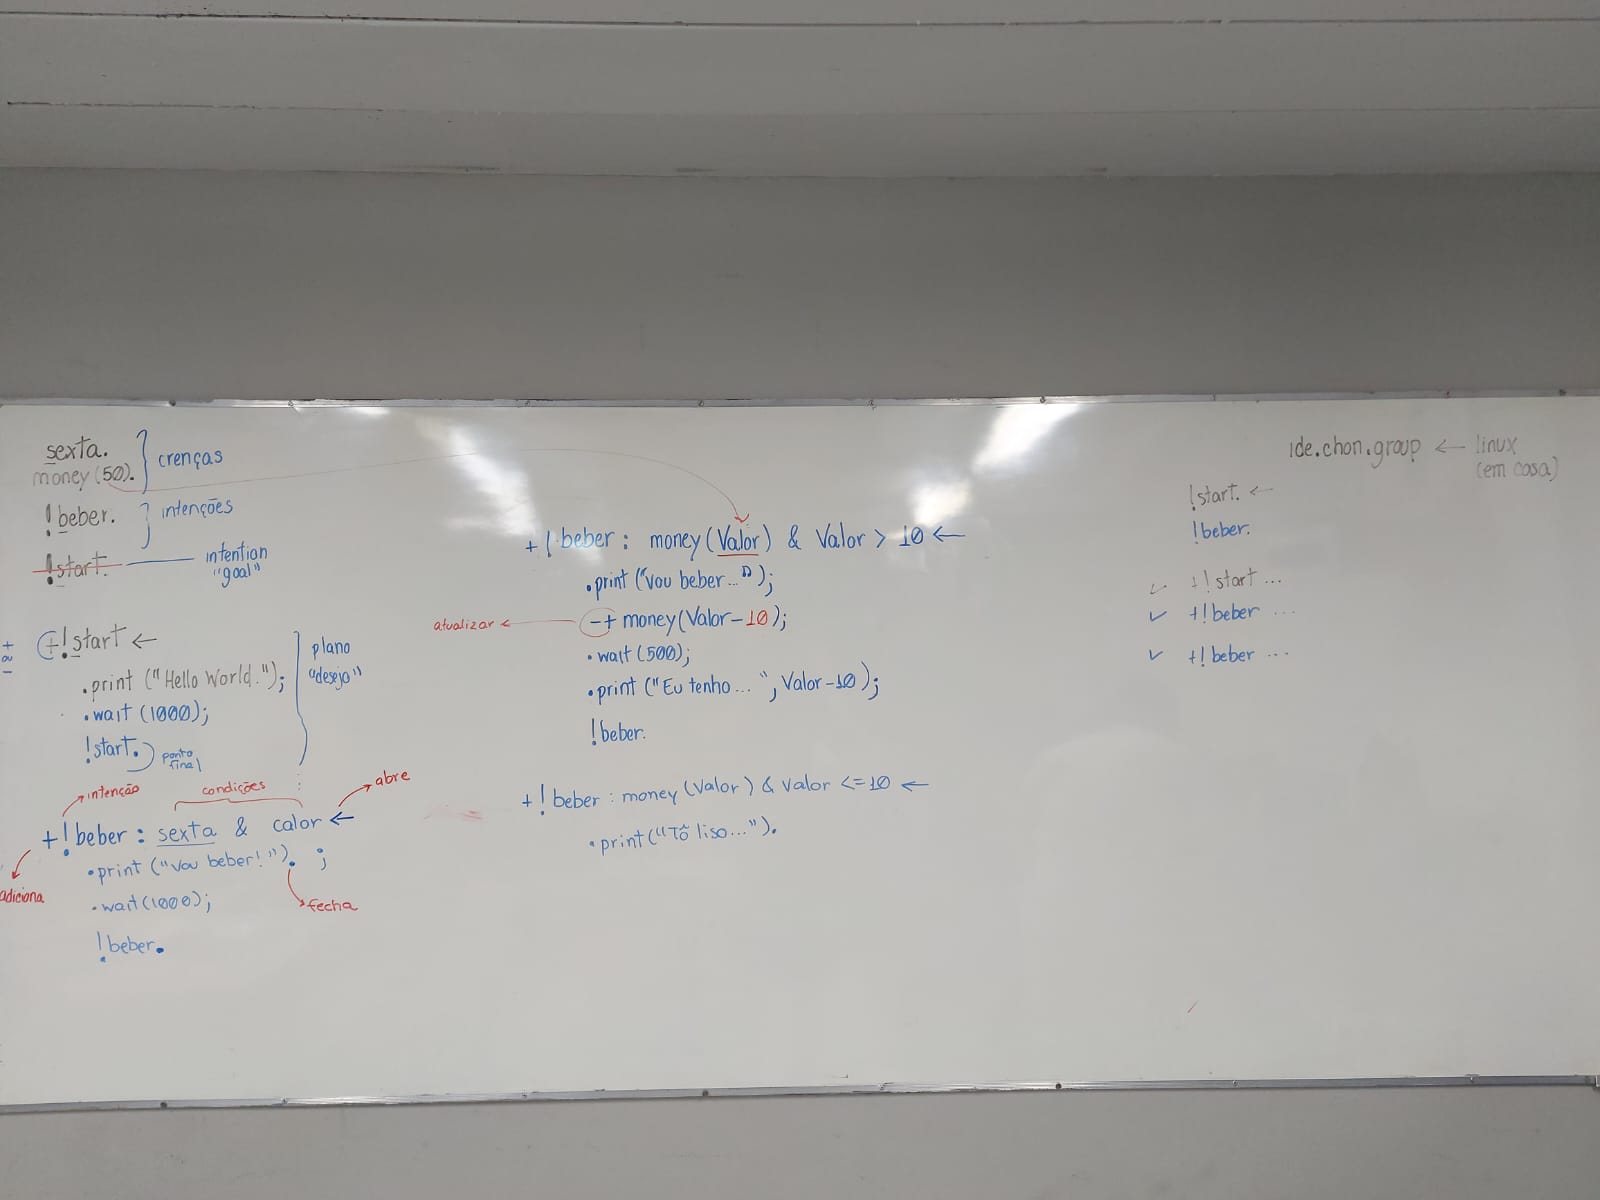 sexta.
money(50).
crenças
!beber.
intenções
!start.
intention
"goal"
+!start ←
.print ("Hello World.");
.wait (1000);
!start.
ponto
final
plano
"desejo"
intenção
condições
abre
+!beber : sexta & calor ←
.print ("Vou beber!"). ;
adiciona
.wait(1000);
fecha
!beber.
+!beber : money(Valor) & Valor > 10 ←
.print ("Vou beber...");
atualizar ← -+ money(Valor-10);
.wait (500);
.print ("Eu tenho... ", Valor-10);
!beber.
+!beber : money(Valor) & Valor <=10 ←
.print("Tô liso...").
ide.chon.group ← linux
(em casa)
!start. ←
!beber.
✓ +!start ...
✓ +!beber ...
✓ +!beber ...